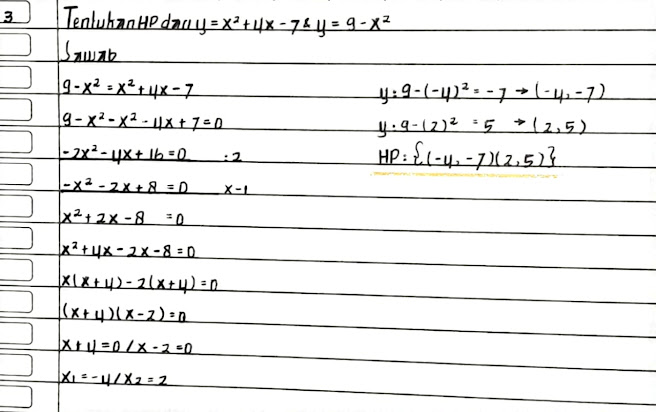 3
Tentukan HP dari y = x² + 4x - 7 & y = 9 - x²
Jawab
9 - x² = x² + 4x - 7
9 - x² - x² - 4x + 7 = 0
-2x² - 4x + 16 = 0 :2
-x² - 2x + 8 = 0 x-1
x² + 2x - 8 = 0
x² + 4x - 2x - 8 = 0
x(x + 4) - 2(x + 4) = 0
(x + 4)(x - 2) = 0
x + 4 = 0 / x - 2 = 0
x₁ = -4 / x₂ = 2
y: 9 - (-4)² = -7 → (-4, -7)
y: 9 - (2)² = 5 → (2, 5)
HP: {(-4, -7)(2, 5)}